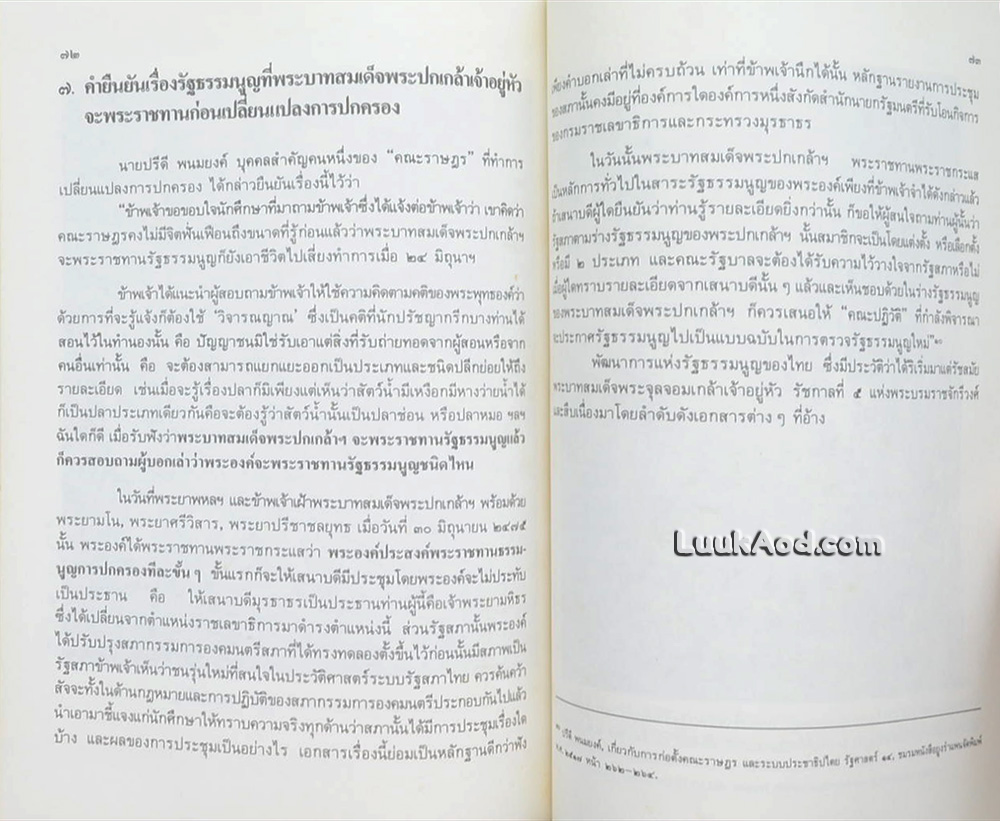 ๗๒
๗. คำยืนยันเรื่องรัฐธรรมนูญที่พระบาทสมเด็จพระปกเกล้าเจ้าอยู่หัว
จะพระราชทานก่อนเปลี่ยนแปลงการปกครอง
นายปรีดี พนมยงค์ บุคคลสำคัญคนหนึ่งของ “คณะราษฎร” ที่ทำการ
เปลี่ยนแปลงการปกครอง ได้กล่าวยืนยันเรื่องนี้ไว้ว่า
“ข้าพเจ้าขอขอบใจนักศึกษาที่มาถามข้าพเจ้าซึ่งได้แจ้งต่อข้าพเจ้าว่า เขาคิดว่า
คณะราษฎรคงไม่มีจิตฟั่นเฟือนถึงขนาดที่รู้ก่อนแล้วว่าพระบาทสมเด็จพระปกเกล้าฯ
จะพระราชทานรัฐธรรมนูญก็ยังเอาชีวิตไปเสี่ยงทำการเมื่อ ๒๔ มิถุนาฯ
ข้าพเจ้าได้แนะนำผู้สอบถามข้าพเจ้าให้ใช้ความคิดตามคติของพระพุทธองค์ว่า
ด้วยการที่จะรู้แจ้งก็ต้องใช้ ‘วิจารณญาณ’ ซึ่งเป็นคติที่นักปรัชญากรีกบางท่านได้
สอนไว้ในทำนองนั้น คือ ปัญญาชนมิใช่รับเอาแต่สิ่งที่รับถ่ายทอดจากผู้สอนหรือจาก
คนอื่นเท่านั้น คือ จะต้องสามารถแยกแยะออกเป็นประเภทและชนิดปลีกย่อยให้ถึง
รายละเอียด เช่นเมื่อจะรู้เรื่องปลาก็มิเพียงแต่เห็นว่าสัตว์น้ำมีเหงือกมีหางว่ายน้ำได้
ก็เป็นปลาประเภทเดียวกันคือจะต้องรู้ว่าสัตว์น้ำนั้นเป็นปลาช่อน หรือปลาหมอ ฯลฯ
ฉันใดก็ดี เมื่อรับฟังว่าพระบาทสมเด็จพระปกเกล้าฯ จะพระราชทานรัฐธรรมนูญแล้ว
ก็ควรสอบถามผู้บอกเล่าว่าพระองค์จะพระราชทานรัฐธรรมนูญชนิดไหน
ในวันที่พระยาพหลฯ และข้าพเจ้าเฝ้าพระบาทสมเด็จพระปกเกล้าฯ พร้อมด้วย
พระยามโน, พระยาศรีวิสาร, พระยาปรีชาชลยุทธ เมื่อวันที่ ๓๐ มิถุนายน ๒๔๗๕
นั้น พระองค์ได้พระราชทานพระราชกระแสว่า พระองค์ประสงค์พระราชทานธรรม-
นูญการปกครองทีละขั้น ๆ ขั้นแรกก็จะให้เสนาบดีมีประชุมโดยพระองค์จะไม่ประทับ
เป็นประธาน คือ ให้เสนาบดีมุรธาธรเป็นประธานท่านผู้นี้คือเจ้าพระยามหิธร
ซึ่งได้เปลี่ยนจากตำแหน่งราชเลขาธิการมาดำรงตำแหน่งนี้ ส่วนรัฐสภานั้นพระองค์
ได้ปรับปรุงสภากรรมการองคมนตรีสภาที่ได้ทรงทดลองตั้งขึ้นไว้ก่อนนั้นมีสภาพเป็น
รัฐสภาข้าพเจ้าเห็นว่าชนรุ่นใหม่ที่สนใจในประวัติศาสตร์ระบบรัฐสภาไทย ควรค้นคว้า
สัจจะทั้งในด้านกฎหมายและการปฏิบัติของสภากรรมการองคมนตรีประกอบกันไปแล้ว
นำเอามาชี้แจงแก่นักศึกษาให้ทราบความจริงทุกด้านว่าสภานั้นได้มีการประชุมเรื่องใด
บ้าง และผลของการประชุมเป็นอย่างไร เอกสารเรื่องนี้ย่อมเป็นหลักฐานดีกว่าฟัง
๗๓
เพียงคำบอกเล่าที่ไม่ครบถ้วน เท่าที่ข้าพเจ้านึกได้นั้น หลักฐานรายงานการประชุม
ของสภานั้นคงมีอยู่ที่องค์การใดองค์การหนึ่งสังกัดสำนักนายกรัฐมนตรีที่รับโอนกิจการ
ของกรมราชเลขาธิการและกระทรวงมุรธาธร
ในวันนั้นพระบาทสมเด็จพระปกเกล้าฯ พระราชทานพระราชกระแส
เป็นหลักการทั่วไปในสาระรัฐธรรมนูญของพระองค์เพียงที่ข้าพเจ้าจำได้ดังกล่าวแล้ว
ถ้าเสนาบดีผู้ใดยืนยันว่าท่านรู้รายละเอียดยิ่งกว่านั้น ก็ขอให้ผู้สนใจถามท่านผู้นั้นว่า
รัฐสภาตามร่างรัฐธรรมนูญของพระปกเกล้าฯ นั้นสมาชิกจะเป็นโดยแต่งตั้ง หรือเลือกตั้ง
หรือมี ๒ ประเภท และคณะรัฐบาลจะต้องได้รับความไว้วางใจจากรัฐสภาหรือไม่
เมื่อผู้ใดทราบรายละเอียดจากเสนาบดีนั้น ๆ แล้วและเห็นชอบด้วยในร่างรัฐธรรมนูญ
ของพระบาทสมเด็จพระปกเกล้าฯ ก็ควรเสนอให้ “คณะปฏิวัติ” ที่กำลังพิจารณา
จะประกาศรัฐธรรมนูญไปเป็นแบบฉบับในการตรวจรัฐธรรมนูญใหม่”
พัฒนาการแห่งรัฐธรรมนูญของไทย ซึ่งมีประวัติว่าได้ริเริ่มมาแต่รัชสมัย
พระบาทสมเด็จพระจุลจอมเกล้าเจ้าอยู่หัว รัชกาลที่ ๕ แห่งพระบรมราชจักรีวงศ์
และสืบเนื่องมาโดยลำดับดังเอกสารต่าง ๆ ที่อ้าง
LuukAod.com
ปรีดี พนมยงค์, เกี่ยวกับการก่อตั้งคณะราษฎร และระบบประชาธิปไตย รัฐศาสตร์ ๑๔. ชมรมหนังสือ
๒๕๑๗ หน้า ๒๖๒–๒๖๔.